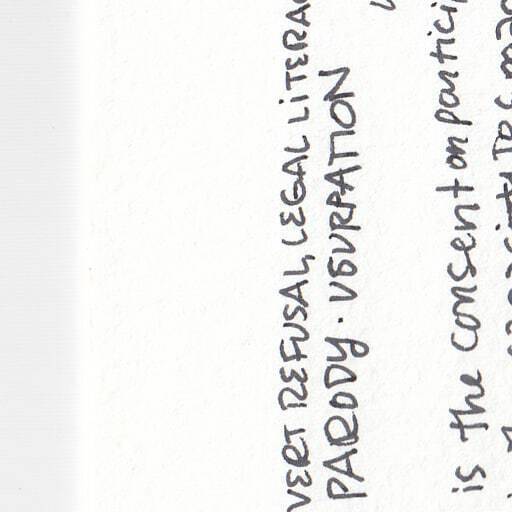 VERT REFUSAL, LEGAL LITERAC
PARODY. USURPATION
is the consent on partici